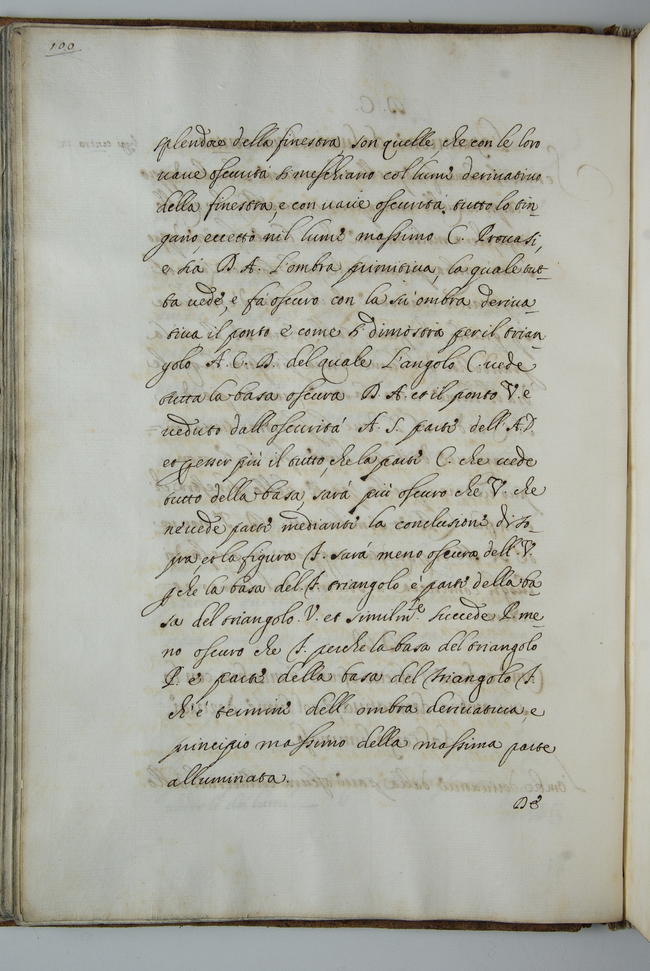 100
splendore della finestra son quelle, che con le loro
varie oscurità si meschiano col lume derivativo
della finestra, e con varie oscurità tutto lo tin-
gano, eccetto nil lume massimo C. Provasi,
e sia D A. L'ombra primitiva, la quale tut-
ta vede, e fa oscuro con la su' ombra deriva-
tiva il ponto e come si dimostra per il trian-
golo A. C. D. del quale L'angolo C. vede
tutta la basa oscura D A. et il ponto V. è
veduto dall'oscurità A. S. parte dell' A. D.
et p esser più il tutto, che la parte C. che vede
tutto della basa, sarà più oscuro che V. che
ne vede parte mediante la conclusione di so-
pra, et la figura I. sarà meno oscura dell' V.
p che la basa del I. triangolo è parte della ba-
sa del triangolo V. et similmte succede P. me-
no oscuro che I. perche la basa del triangolo
P. è parte della basa del triangolo I.
ch'è termine dell' ombra derivativa, e
principio massimo della massima parte
alluminata.
De